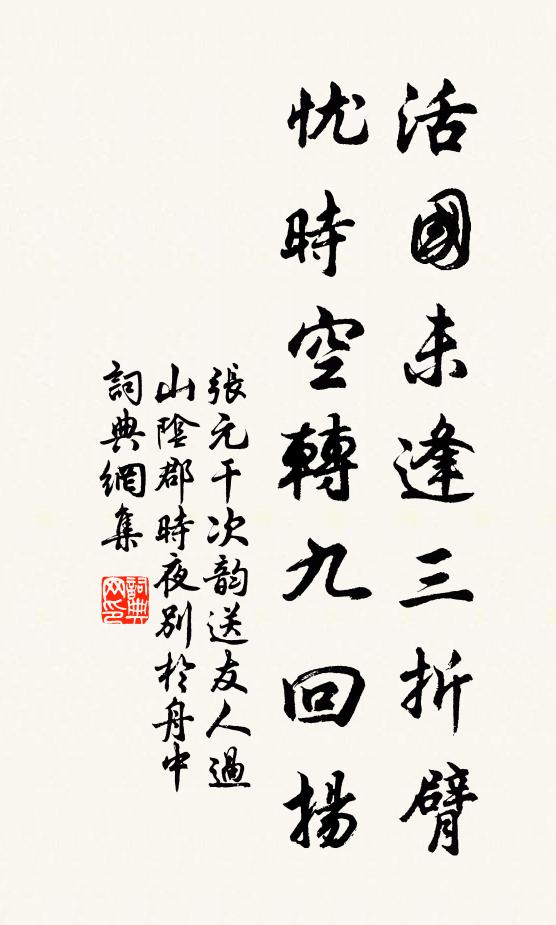 活國未逢三折臂
忧時空轉九回揚
張元干次韵送友人過
山陰郡時夜別於舟中
詞典網集
詞典網印